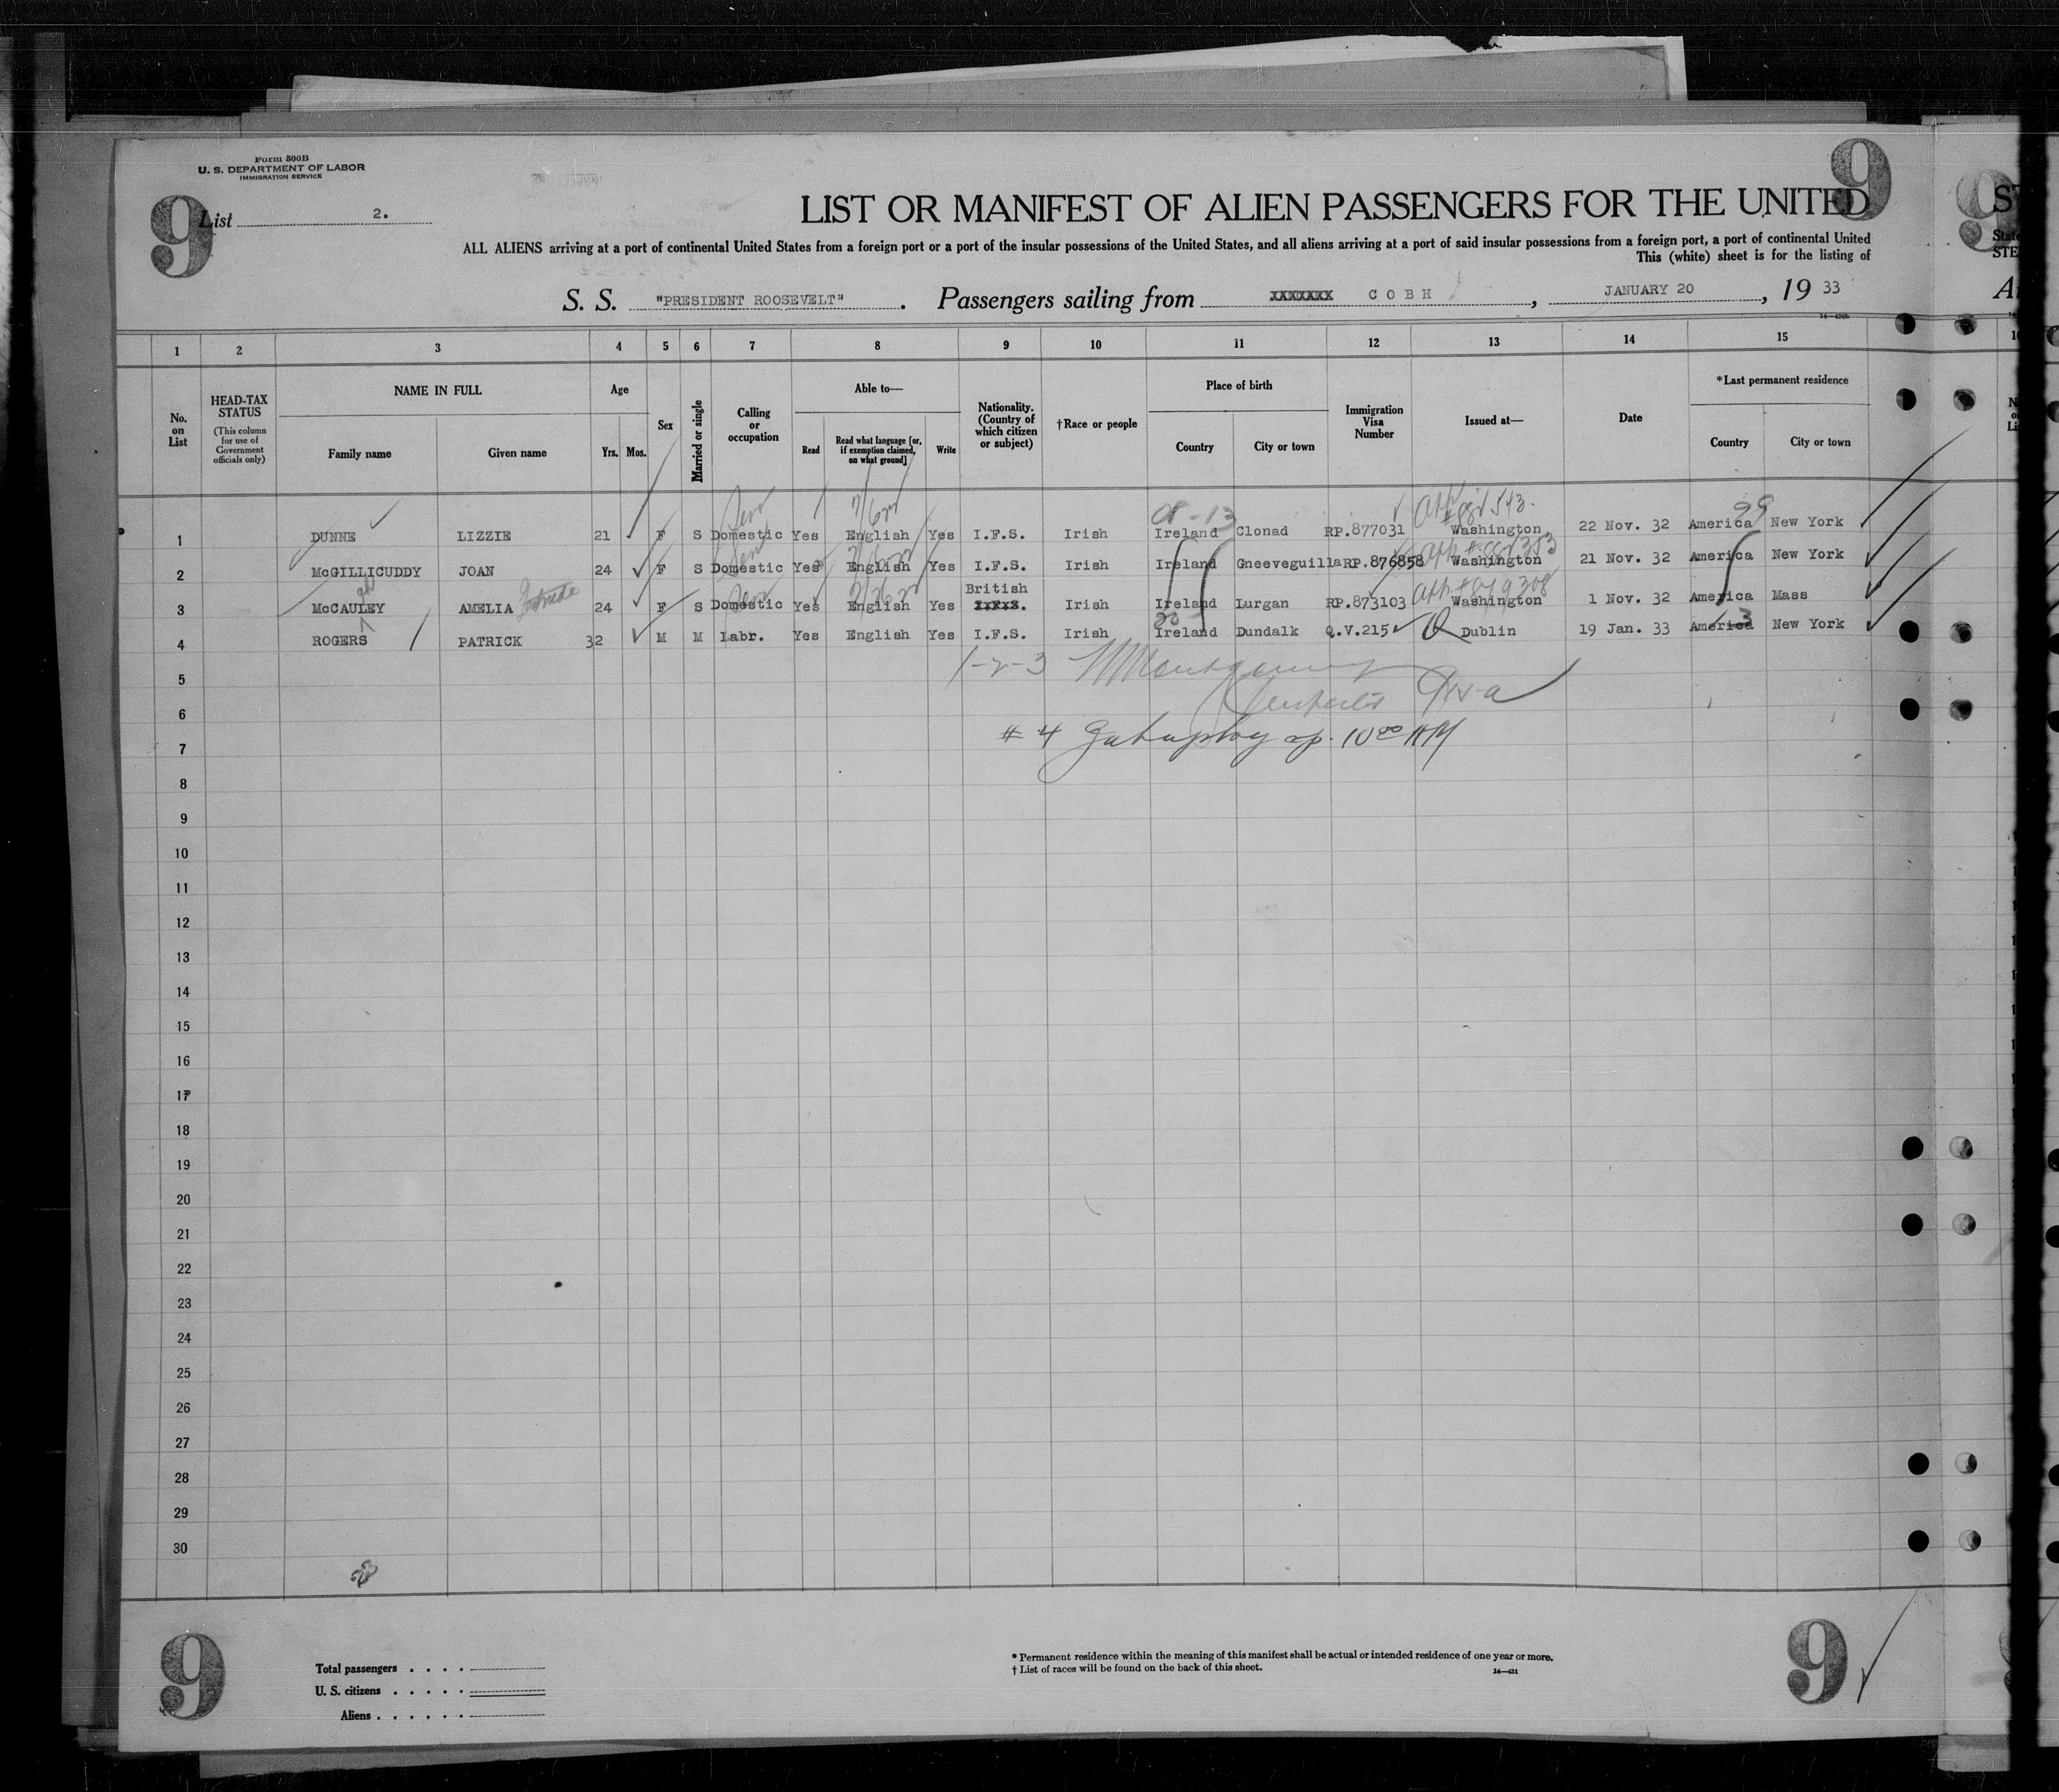 Form 500B
U. S. DEPARTMENT OF LABOR
IMMIGRATION SERVICE
9
9
9
List 2.
LIST OR MANIFEST OF ALIEN PASSENGERS FOR THE UNITED
ST
ALL ALIENS arriving at a port of continental United States from a foreign port or a port of the insular possessions of the United States, and all aliens arriving at a port of said insular possessions from a foreign port, a port of continental United
State
This (white) sheet is for the listing of
STE
S. S. "PRESIDENT ROOSEVELT". Passengers sailing from XXXXXXX COBH, JANUARY 20, 19 33
1 2 3 4 5 6 7 8 9 10 11 12 13 14 15
No. on List
HEAD-TAX STATUS (This column for use of Government officials only)
NAME IN FULL
Family name Given name
Age
Yrs. Mos.
Sex
Married or single
Calling or occupation
Able to—
Read
Read what language [or, if exemption claimed, on what ground]
Write
Nationality. (Country of which citizen or subject)
†Race or people
Place of birth
Country City or town
Immigration Visa Number
Issued at—
Date
*Last permanent residence
Country City or town
1 DUNNE LIZZIE 21 F S Domestic Yes English Yes I.F.S. Irish Ireland Clonad RP.877031 Washington 22 Nov. 32 America New York
2 McGILLICUDDY JOAN 24 F S Domestic Yes English Yes I.F.S. Irish Ireland Gneeveguilla RP.876858 Washington 21 Nov. 32 America New York
British
3 McCAULEY AMELIA 24 F S Domestic Yes English Yes Irish Ireland Lurgan RP.873103 Washington 1 Nov. 32 America Mass
4 ROGERS PATRICK 32 M M Labr. Yes English Yes I.F.S. Irish Ireland Dundalk Q.V.215 Dublin 19 Jan. 33 America New York
5 1-2-3 Montgomery
6
7 # 4
8
9
10
11
12
13
14
15
16
17
18
19
20
21
22
23
24
25
26
27
28
29
30
9
9
Total passengers
U. S. citizens
Aliens
* Permanent residence within the meaning of this manifest shall be actual or intended residence of one year or more.
† List of races will be found on the back of this sheet.